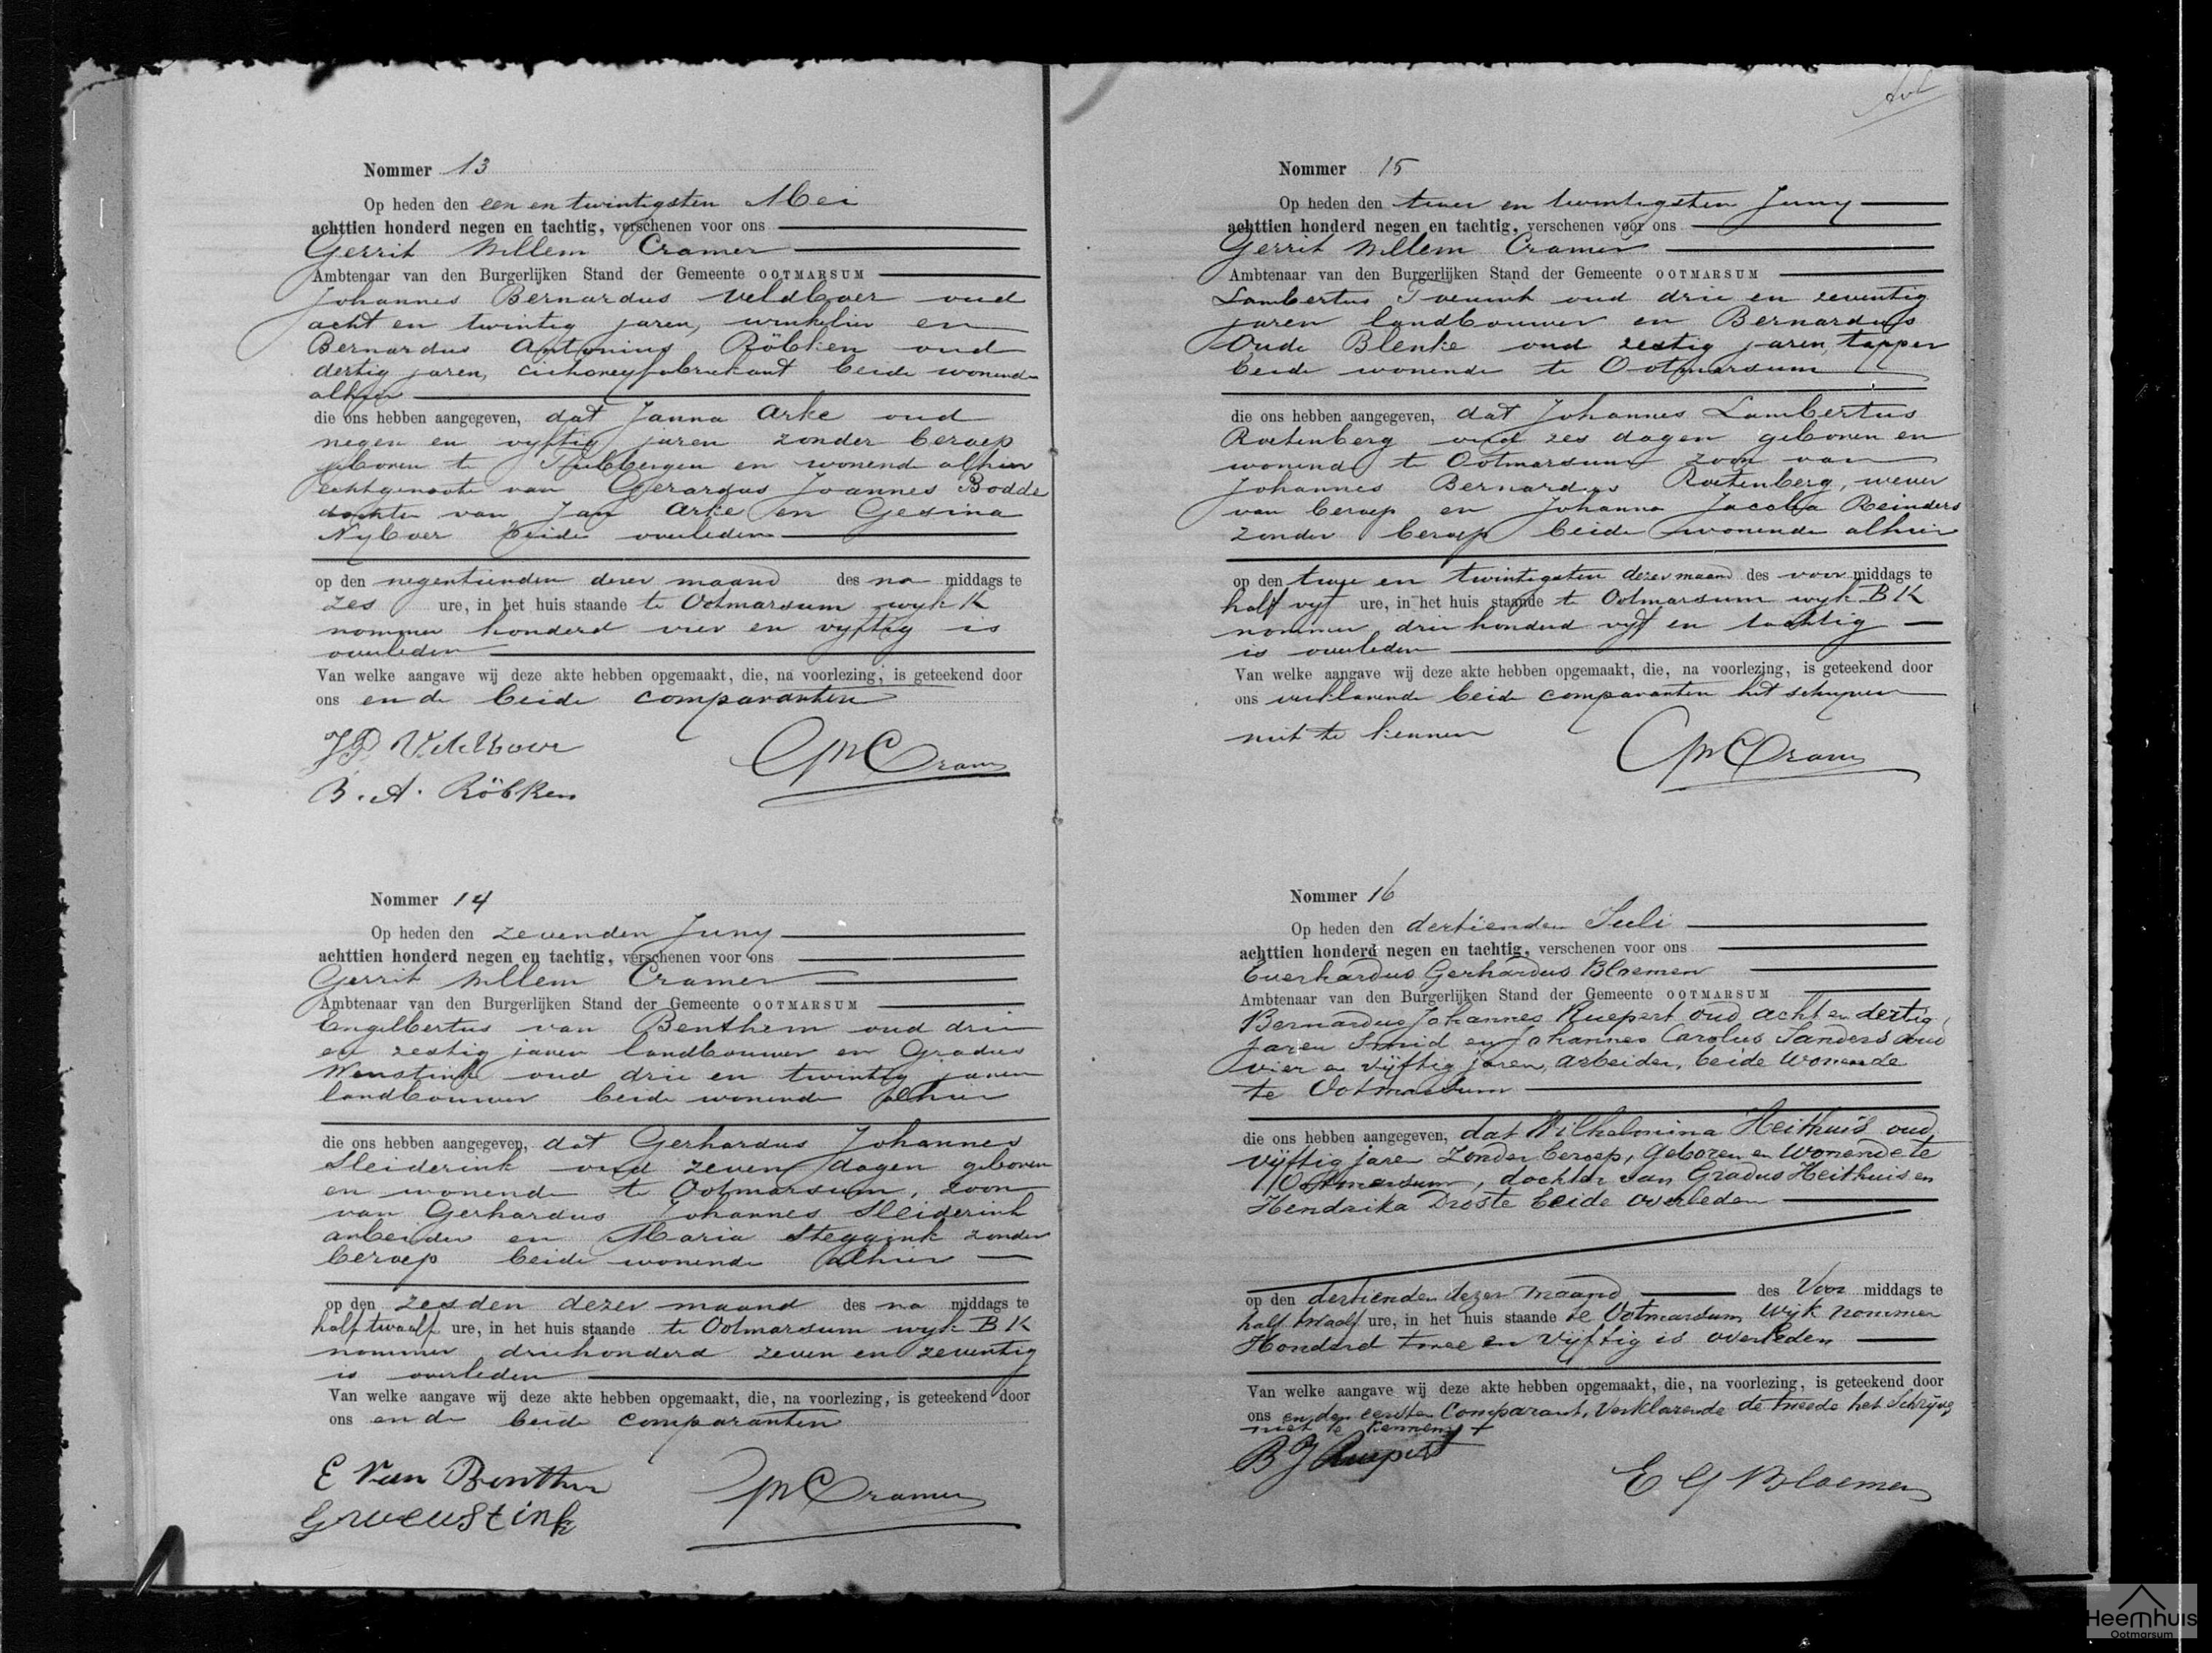 Nommer 13
Op heden den een en twintigsten Mei
achttien honderd negen en tachtig, verschenen voor ons
Gerrit Willem Cramer
Ambtenaar van den Burgerlijken Stand der Gemeente OOTMARSUM
Johannes Bernardus Veldboer oud
acht en twintig jaren, winkelier en
Bernardus Antonius Röbken oud
dertig jaren, cichoreyfabriekant beide wonende
alhier
die ons hebben aangegeven, dat Janna Arke oud
negen en vyftig jaren zonder beroep
geboren te Tubbergen en wonende alhier
echtgenoote van Gerardus Joannes Bodde
dochter van Jan Arke en Gesina
Nyboer beide overleden
op den negentienden dezer maand des na middags te
zes ure, in het huis staande te Ootmarsum wyk K
nommer honderd vier en vyftig is
overleden
Van welke aangave wij deze akte hebben opgemaakt, die, na voorlezing, is geteekend door
ons en de beide comparanten
JB Veldboer
GW Cramer
B. A. Röbken
Nommer 14
Op heden den zevenden Juny
achttien honderd negen en tachtig, verschenen voor ons
Gerrit Willem Cramer
Ambtenaar van den Burgerlijken Stand der Gemeente OOTMARSUM
Engelbertus van Benthem oud drie
en zestig jaren landbouwer en Gradus
Weustink oud drie en twintig jaren
landbouwer beide wonende alhier
die ons hebben aangegeven, dat Gerhardus Johannes
Sleiderink oud zeven dagen geboren
en wonende te Ootmarsum, zoon
van Gerhardus Johannes Sleiderink
arbeider en Maria Steggink zonder
beroep beide wonende alhier
op den zesden dezer maand des na middags te
half twaalf ure, in het huis staande te Ootmarsum wyk B K
nommer driehonderd zeven en zeventig
is overleden
Van welke aangave wij deze akte hebben opgemaakt, die, na voorlezing, is geteekend door
ons en de beide comparanten
E Van Benthem
GW Cramer
G Weustink
Nommer 15
Op heden den twee en twintigsten Juny
achttien honderd negen en tachtig, verschenen voor ons
Gerrit Willem Cramer
Ambtenaar van den Burgerlijken Stand der Gemeente OOTMARSUM
Lambertus oud drie en zeventig
jaren landbouwer en Bernardus
Oude Blenke oud zestig jaren, tapper
beide wonende te Ootmarsum
die ons hebben aangegeven, dat Johannes Lambertus
Rotenberg oud zes dagen geboren en
wonende te Ootmarsum zoon van
Johannes Bernardus Rotenberg, wever
van beroep en Johanna Jacoba Reinders
zonder beroep beide wonende alhier
op den twee en twintigsten dezer maand des voor middags te
half vyf ure, in het huis staande te Ootmarsum wyk B K
nommer driehonderd vyf en tachtig
is overleden
Van welke aangave wij deze akte hebben opgemaakt, die, na voorlezing, is geteekend door
ons verklarende beide comparanten het schryven
niet te kennen
GW Cramer
Nommer 16
Op heden den dertienden Juli
achttien honderd negen en tachtig, verschenen voor ons
Everhardus Gerhardus Bloemen
Ambtenaar van den Burgerlijken Stand der Gemeente OOTMARSUM
Bernardus Johannes Ruepert oud acht en dertig
jaren Smid en Johannes Carolus Sanders oud
vier en vijftig jaren, arbeider, beide Wonende
te Ootmarsum
die ons hebben aangegeven, dat Wilhelmina Heithuis oud
vijftig jaren Zonder beroep, Geboren en Wonende te
Ootmarsum, dochter van Gradus Heithuis en
Hendrika Droste beide overleden
op den dertienden dezer maand des Voor middags te
half twaalf ure, in het huis staande te Ootmarsum Wijk nommer
Honderd twee en Vijftig is overleden
Van welke aangave wij deze akte hebben opgemaakt, die, na voorlezing, is geteekend door
ons en den eersten Comparant, Verklarende de tweede het Schrijven
niet te kennen
BJ Ruepert
E G Bloemen
Heemhuis
Ootmarsum